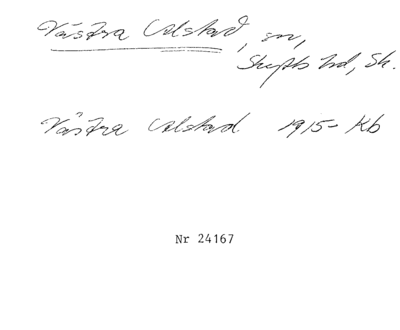 Västra Alstad, sn,
Skytts hd, Sk.
Västra Alstad. 1915- Kb
Nr 24167